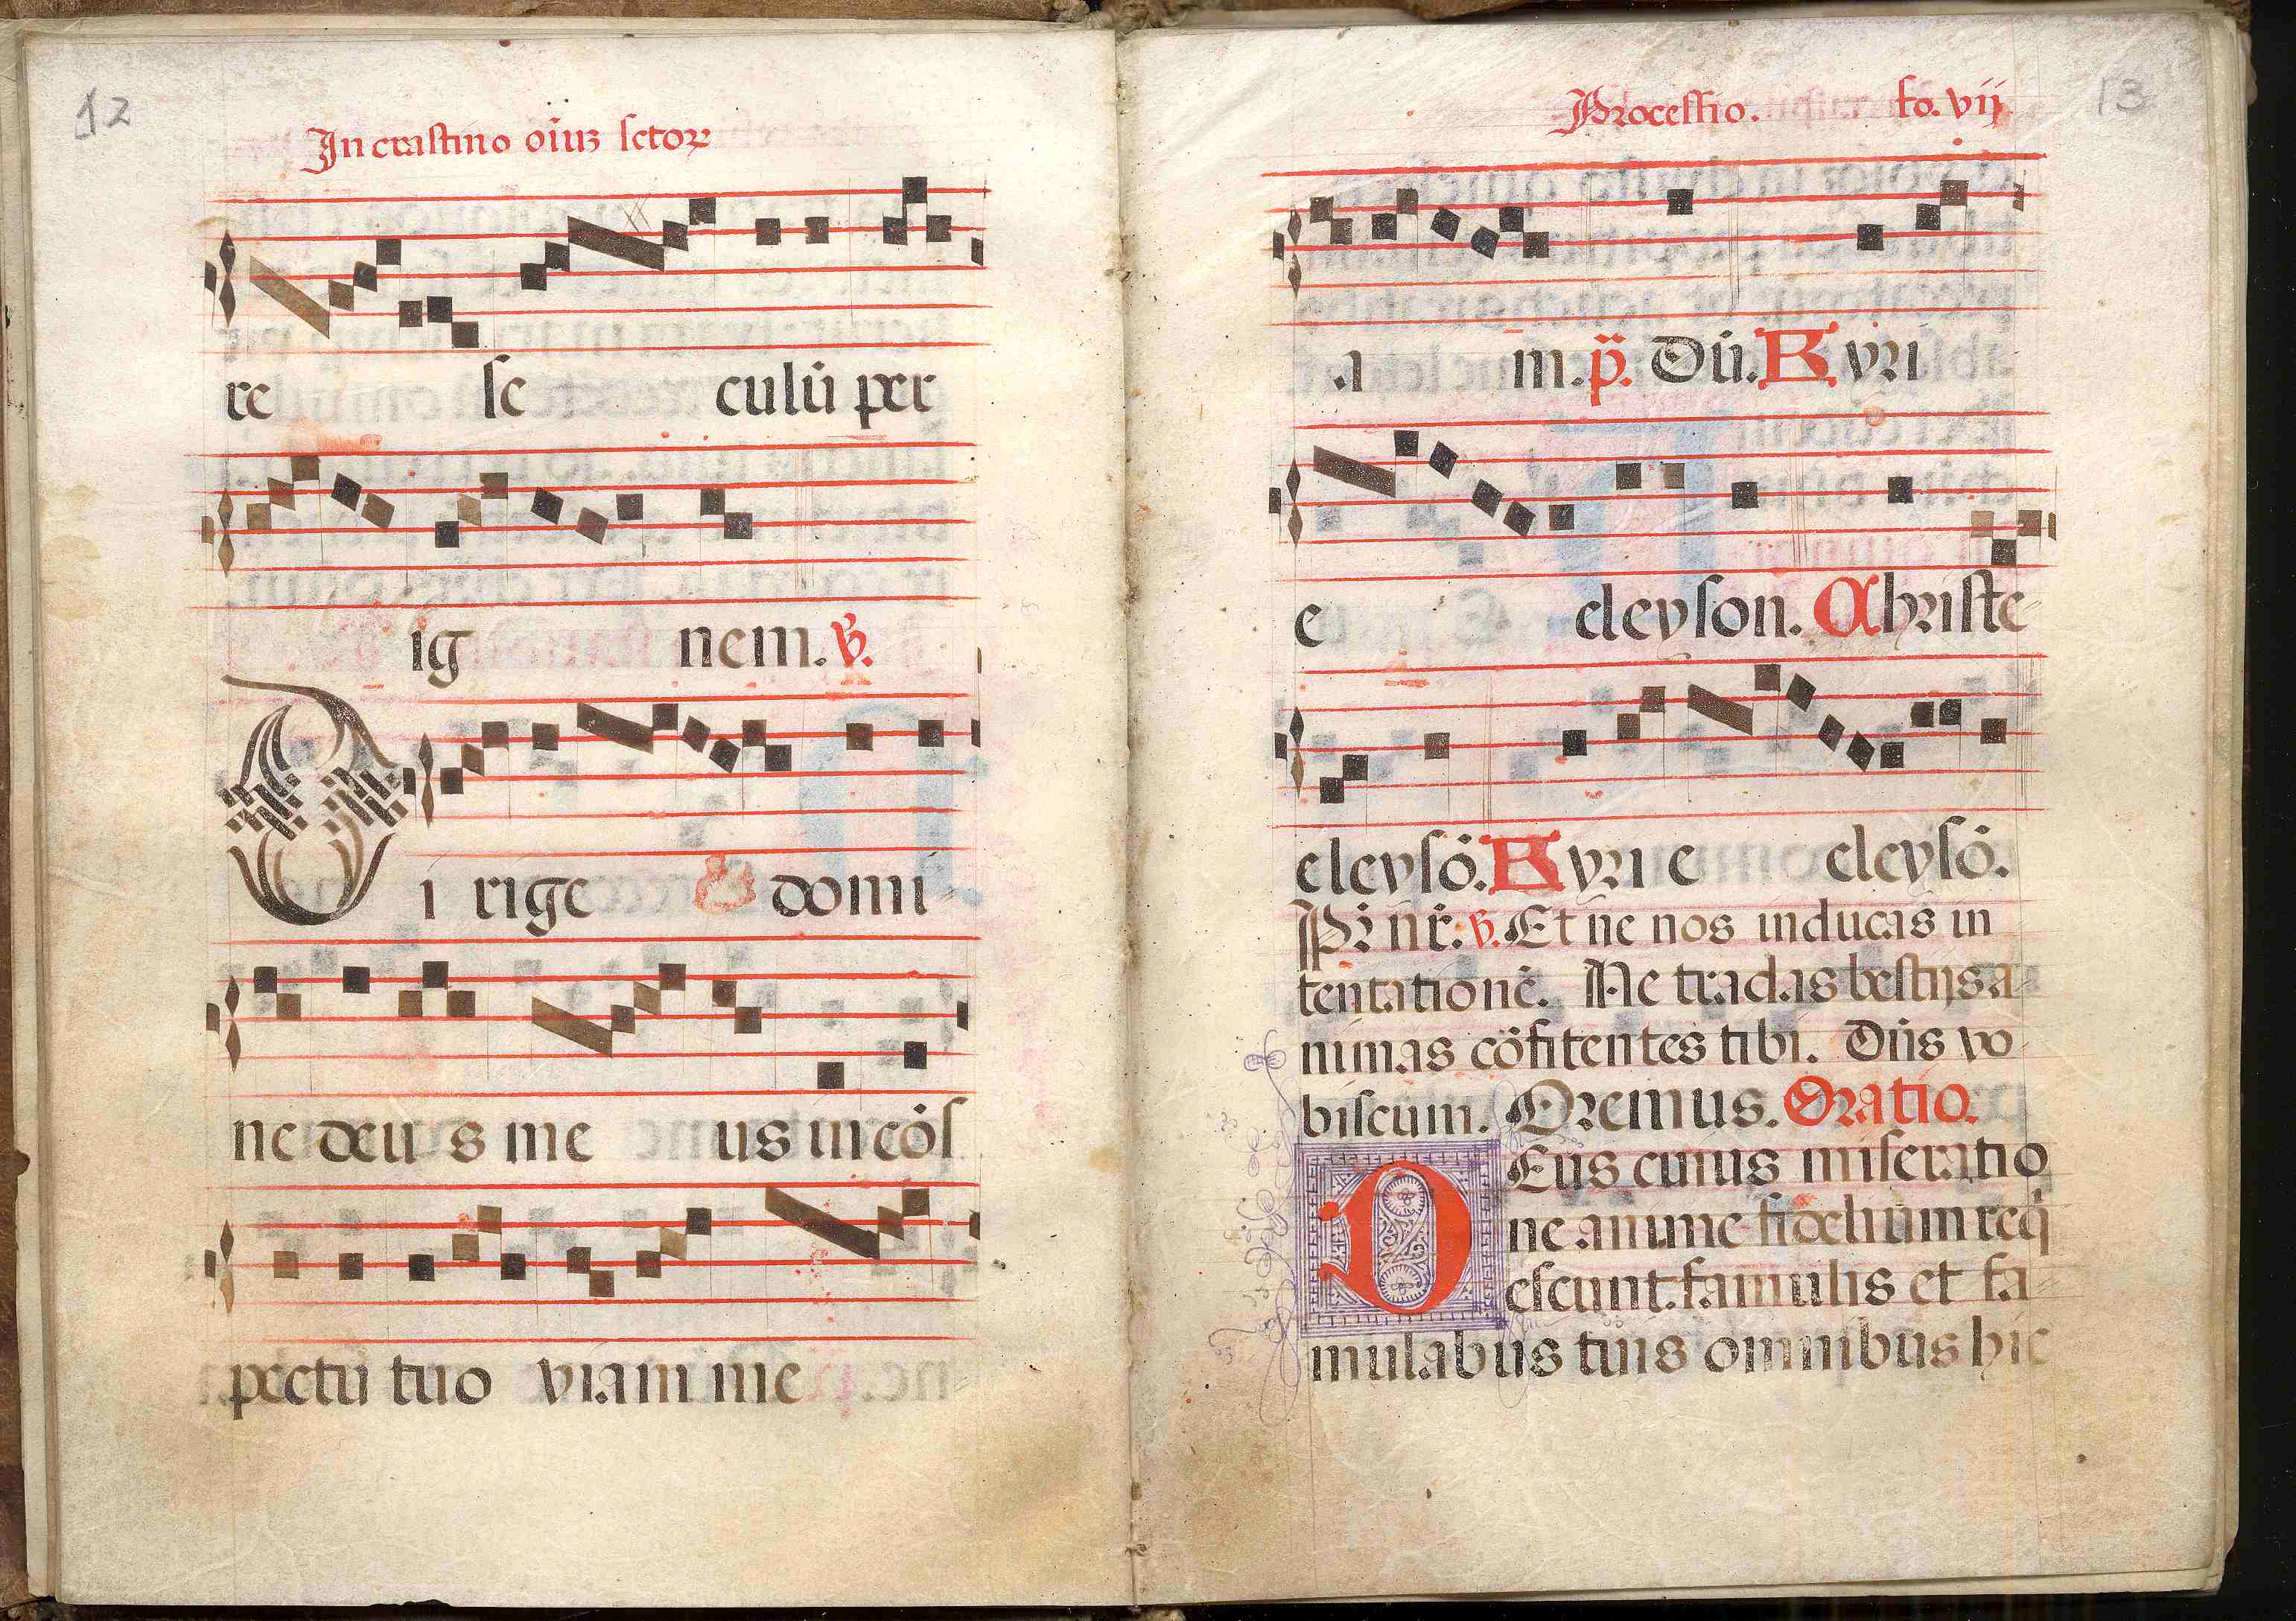 12
In crastino oı̄uꝫ sctoꝝ
re se culū per
ig nem. ℣.
Di rige domi
ne deus me us in cōs
pectu tuo viam me
Processio. fo. vij
13
a m. p̈. Dn̄. Kyri
e eleyson. Christe
eleysō. Kyri e eleysō.
Pr̄ nr̄. ℣. Et ne nos inducas in
tentationē. Ne tradas bestijs a-
nimas cōfitentes tibi. Dn̄s vo-
biscum. Oremus. Oratio.
DEus cuius miseratio
ne anime fidelium req̄
escunt. famulis et fa-
mulabus tuis omnibus hic